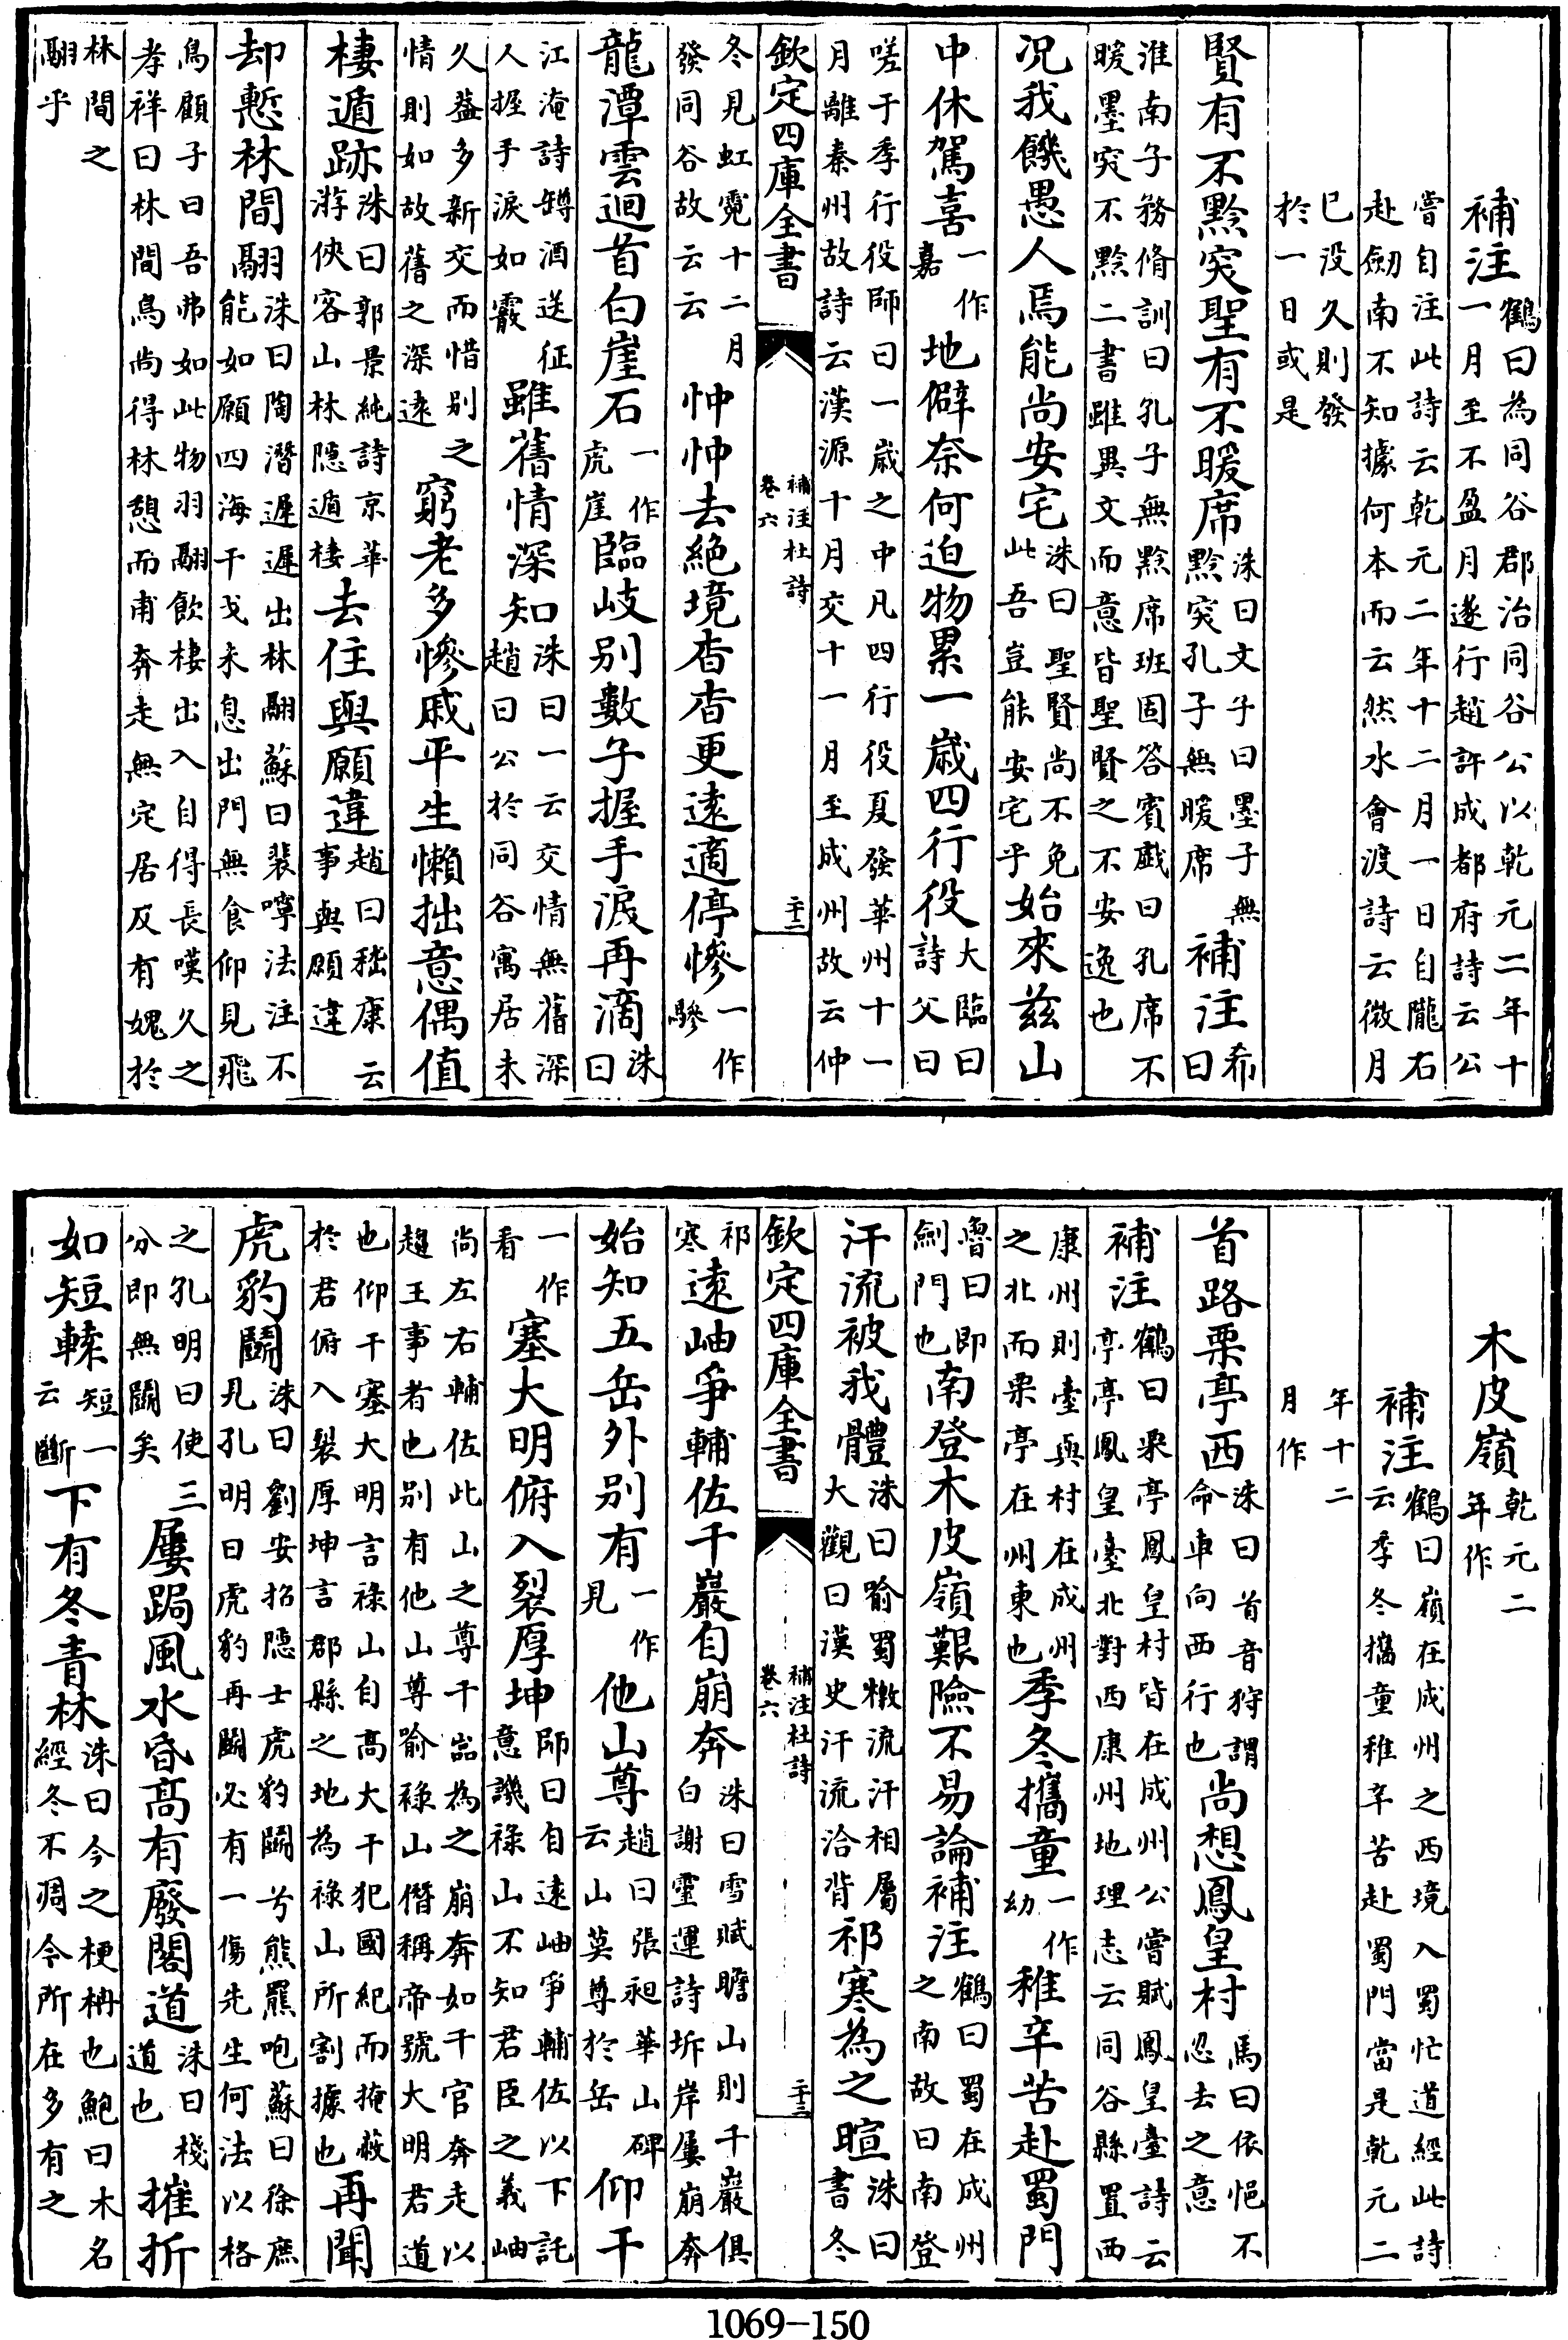 補注鶴曰為同谷郡治同谷公以乾元二年十
一月至不盈月遂行趙許成都府詩云公
嘗自注此詩云乾元二年十二月一日自隴右
赴劒南不知據何本而云然水會渡詩云微月
已没久則發
於一日或是
賢有不黔突聖有不暖席洙曰文子曰墨子無黔突孔子無暖席補注希曰
淮南子務脩訓曰孔子無黔席班固答賓戲曰孔席不
暖墨突不黔二書雖異文而意皆聖賢之不安逸也
况我饑愚人焉能尚安宅洙曰聖賢尚不免此吾豈能安宅乎始來兹山
中休駕喜一作嘉地僻奈何迫物累一嵗四行役大臨曰詩父曰
嗟于季行役師曰一嵗之中凡四行役夏發華州十一
月離秦州故詩云漢源十月交十一月至成州故云仲
欽定四庫全書 補注杜詩 卷六 二十二
冬見虹霓十二月發同谷故云云忡忡去絶境杳杳更逺適停慘一作驂
龍潭雲迴首白崖石一作虎崖臨岐别數子握手淚再滴洙曰
江淹詩罇酒送征人握手淚如霰雖舊情深知洙曰一云交情無舊深趙曰公於同谷寓居未
久葢多新交而惜别之情則如故舊之深逺窮老多慘戚平生懶拙意偶值
棲遁跡洙曰郭景純詩京華游俠客山林隱遁棲去住與願違趙曰嵇康云事與願違
却慙林間翮洙曰陶潛遲遲出林翮蘇曰裴噂法注不能如願四海干戈未息出門無食仰見飛
鳥顧子曰吾弗如此物羽翮飲棲出入自得長嘆久之
孝祥曰林間鳥尚得林憩而甫奔走無定居反有媿於
林間之
翮乎
木皮嶺乾元二年作
補注鶴曰嶺在成州之西境入蜀忙道經此詩
云季冬攜童稚辛苦赴蜀門當是乾元二
年十二
月作
首路栗亭西洙曰首音狩謂命車向西行也尚想鳳皇村馬曰依悒不忍去之意
補注鶴曰栗亭鳳皇村皆在成州公嘗賦鳳皇臺詩云
亭亭鳳皇臺北對西康州地理志云同谷縣置西
康州則臺與村在成州之北而栗亭在州東也季冬攜童一作幼稚辛苦赴蜀門
魯曰即劍門也南登木皮嶺艱險不易論補注鶴曰蜀在成州之南故曰南登
汗流被我體洙曰喻蜀檄流汗相屬大觀曰漢史汗流洽背祁寒為之暄洙曰書冬
欽定四庫全書 補注杜詩 卷六 二十三
祁寒逺岫爭輔佐千巖自崩奔洙曰雪賦瞻山則千巖俱白謝靈運詩圻岸屢崩奔
始知五岳外别有一作見他山尊趙曰張昶華山碑云山莫尊於岳仰干
一作看塞大明俯入裂厚坤師曰自逺岫爭輔佐以下託意譏祿山不知君臣之義岫
尚左右輔佐此山之尊千嵓為之崩奔如千官奔走以
趨王事者也别有他山尊喻祿山僭稱帝號大明君道
也仰干塞大明言祿山自高大干犯國紀而掩蔽於君俯入裂厚坤言郡縣之地為祿山所割據也再聞
虎豹鬭洙曰劉安招隱士虎豹鬭兮熊羆咆蘇曰徐庶見孔明曰虎豹再鬭必有一傷先生何法以格
之孔明曰使三分即無鬭矣屢跼風水昏高有廢閣道洙曰棧道也摧折
如短轅短一云斷下有冬青林洙曰今之梗柟也鮑曰木名經冬不凋今所在多有之
1069-150